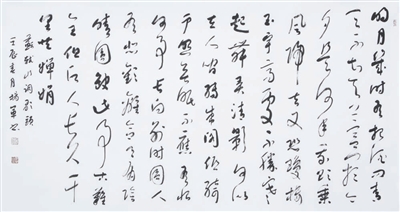 明月幾時有把酒問青
天不知天上宮闕今
夕是何年我欲乘
風歸去又恐瓊樓
玉宇高處不勝寒
起舞弄清影何似
在人間轉朱閣低綺
户照無眠不應有恨
何事長向别時圓人
有悲歡離合月有陰
晴圓缺此事古難
全但願人長久千
里共嬋娟
蘇軾水調歌頭
壬辰